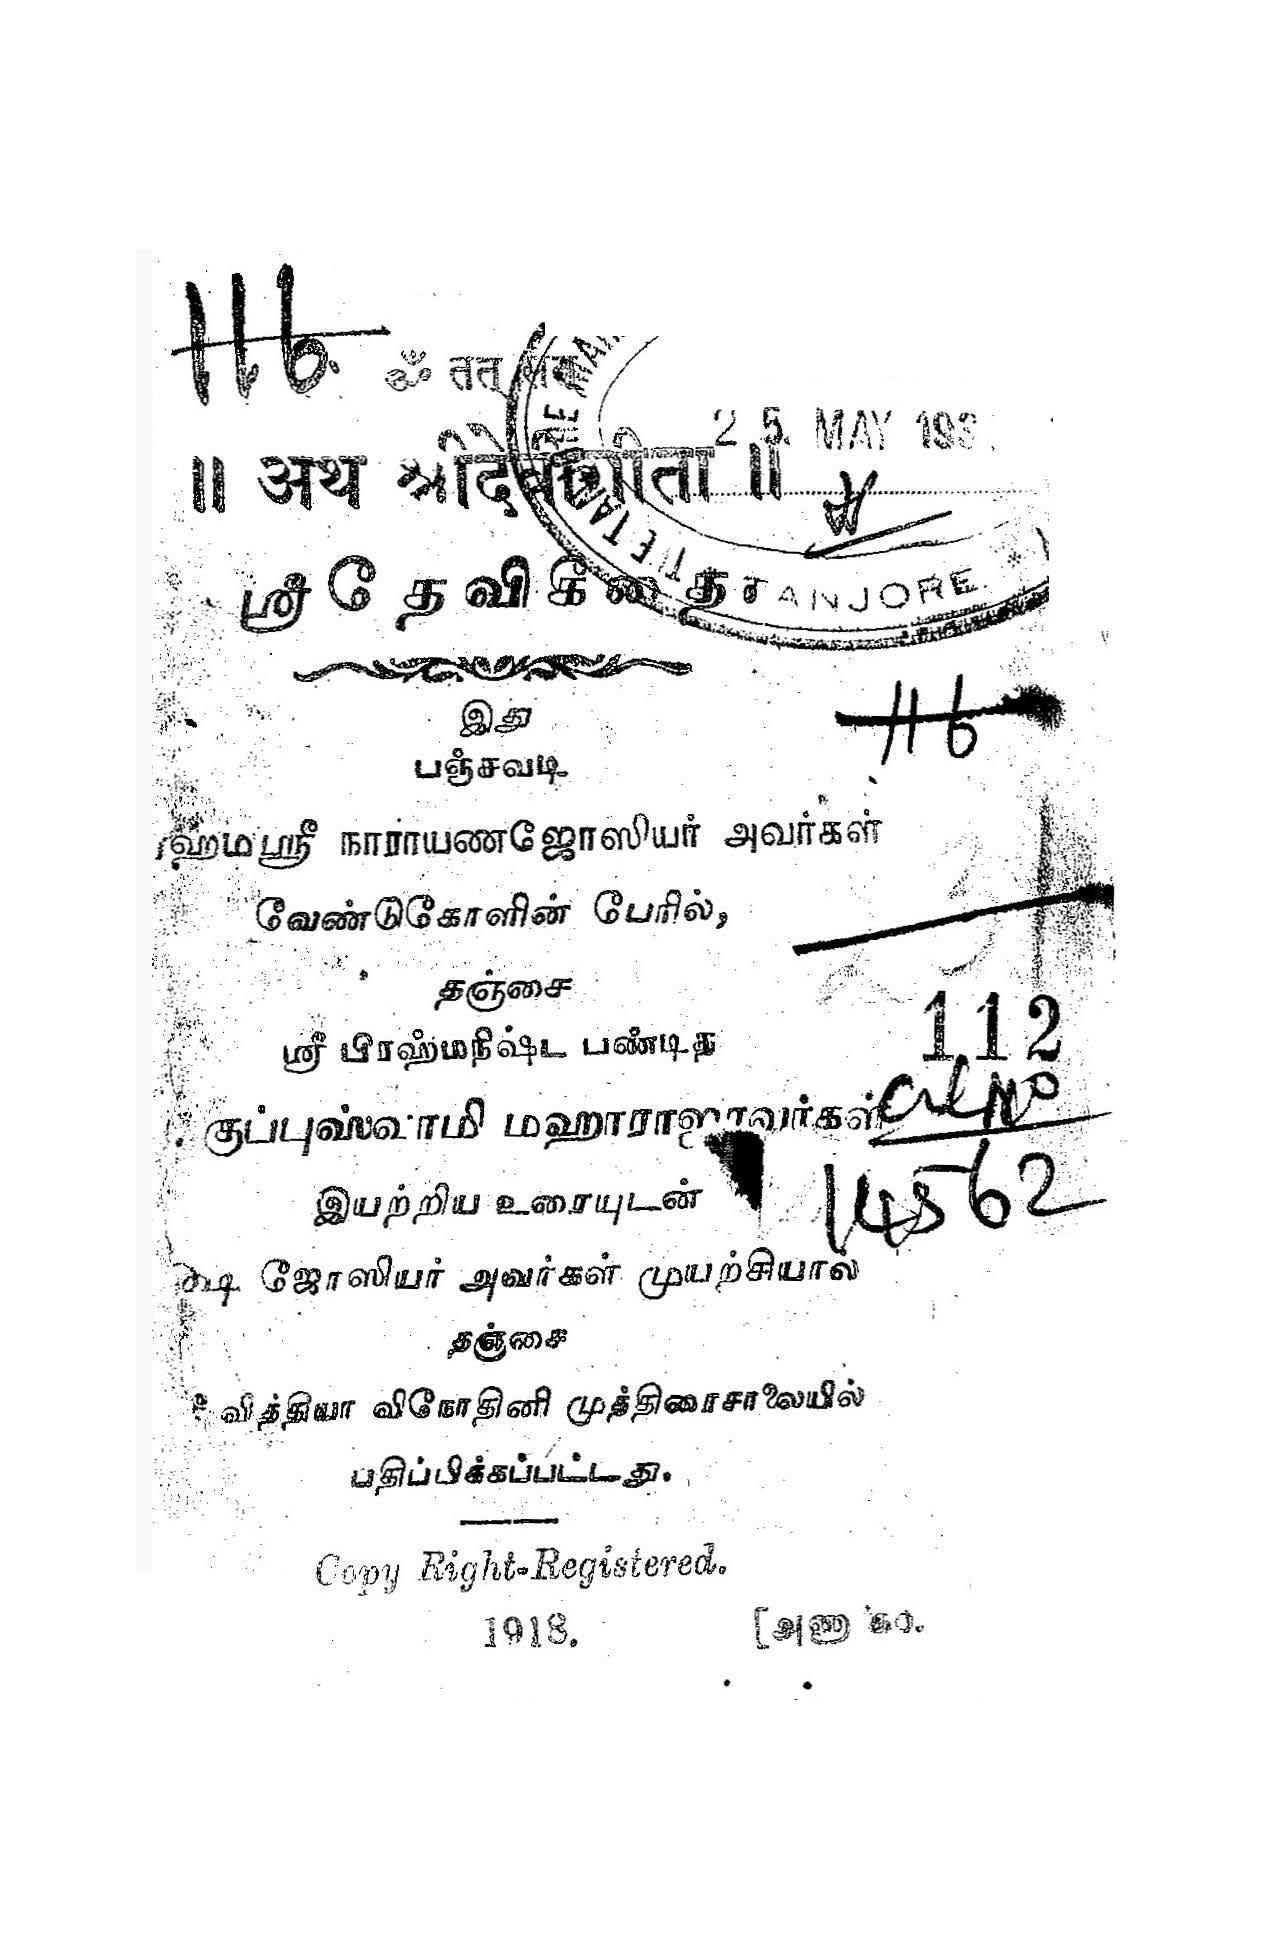 116.
ॐ तत् सत्
॥ अथ श्रीदेवीगीता ॥
25 MAY 193
TANJORE
ஸ்ரீ தேவிகீதை
இது
116
பஞ்சவடி
ஹ்மஸ்ரீ நாராயணஜோஸியர் அவர்கள்
வேண்டுகோளின் பேரில்,
தஞ்சை
ஸ்ரீ பிரஹ்மநிஷ்ட பண்டித
112
குப்புஸ்வாமி மஹாராஜாவர்கள்
14562
இயற்றிய உரையுடன்
௸ ஜோஸியர் அவர்கள் முயற்சியால்
தஞ்சை
வித்தியா விநோதினி முத்திரைசாலையில்
பதிப்பிக்கப்பட்டது.
Copy Right-Registered.
1918. [அணா